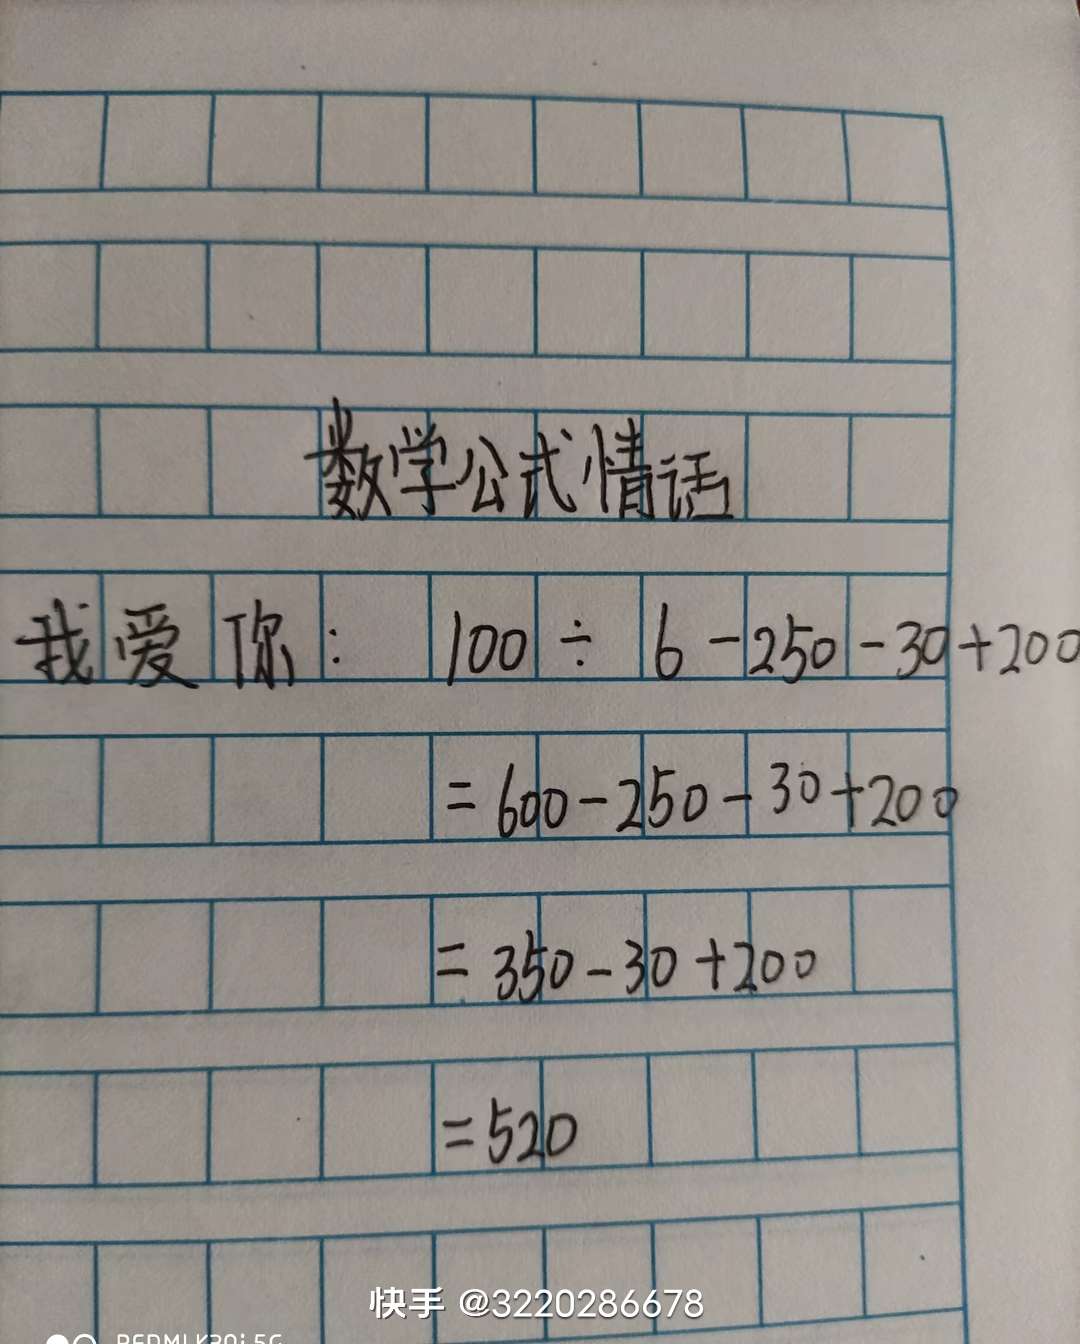 数学公式情话
我爱你: 100 ÷ 6 - 250 - 30 + 200
= 600 - 250 - 30 + 200
= 350 - 30 + 200
= 520
快手 @3220286678
REDMI K30i 5G